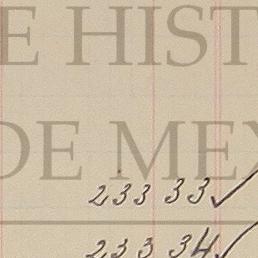 E HIST
DE MEX
233 33 ✓
233 34 ✓